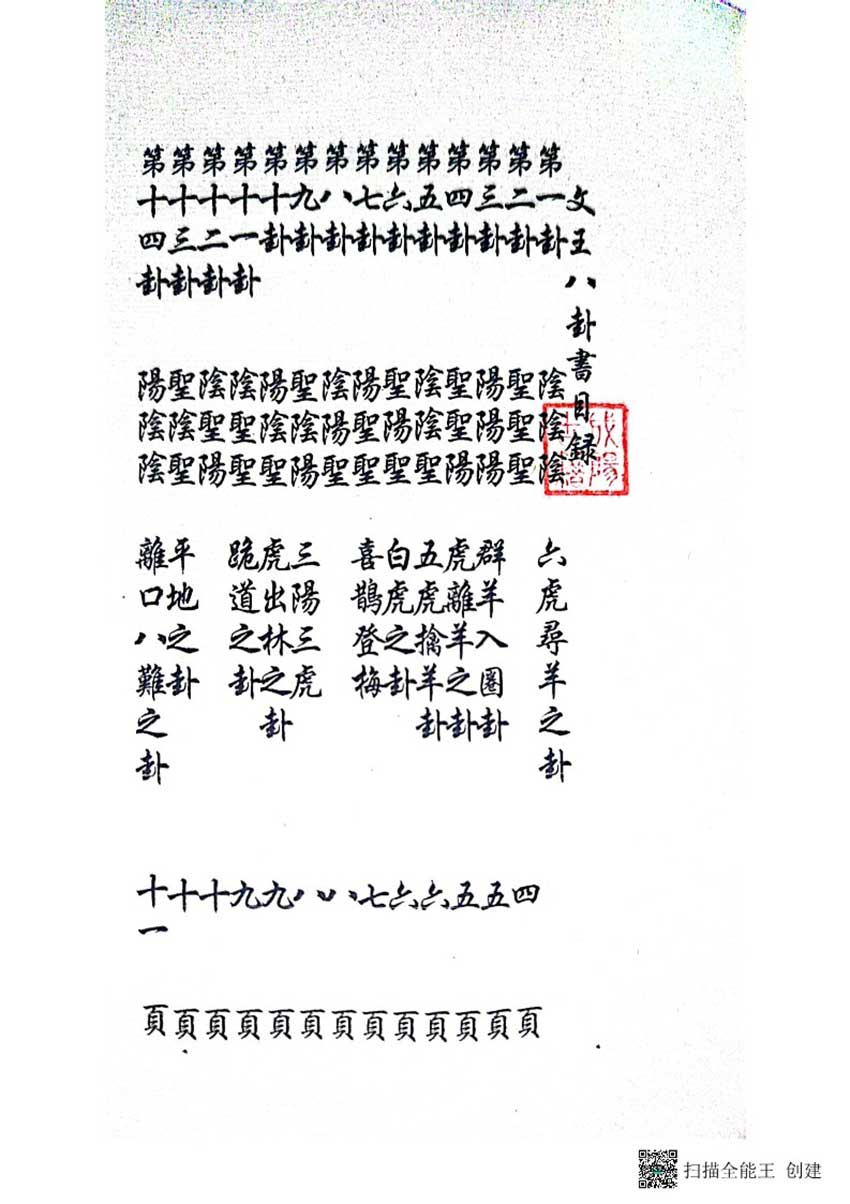 文王八卦書目録
第一卦 陰陰陰 六虎尋羊之卦
第二卦 聖聖聖 四頁
第三卦 陽陽陽 群羊入圈卦 五頁
第四卦 聖聖陽 虎離羊之卦 五頁
第五卦 陰陰聖 五虎擒羊卦 六頁
第六卦 聖陽聖 白虎之卦 六頁
第七卦 陽聖聖 喜鵲登梅 七頁
第八卦 陰陽聖 八頁
第九卦 聖陰陽 三陽三虎 八頁
第十卦 陽陰聖 虎出林之卦 九頁
第十一卦 陰聖聖 跪道之卦 九頁
第十二卦 陰聖陽 十頁
第十三卦 聖陰聖 平地之卦 十頁
第十四卦 陽陰陰 離口八難之卦 十一頁
扫描全能王 创建